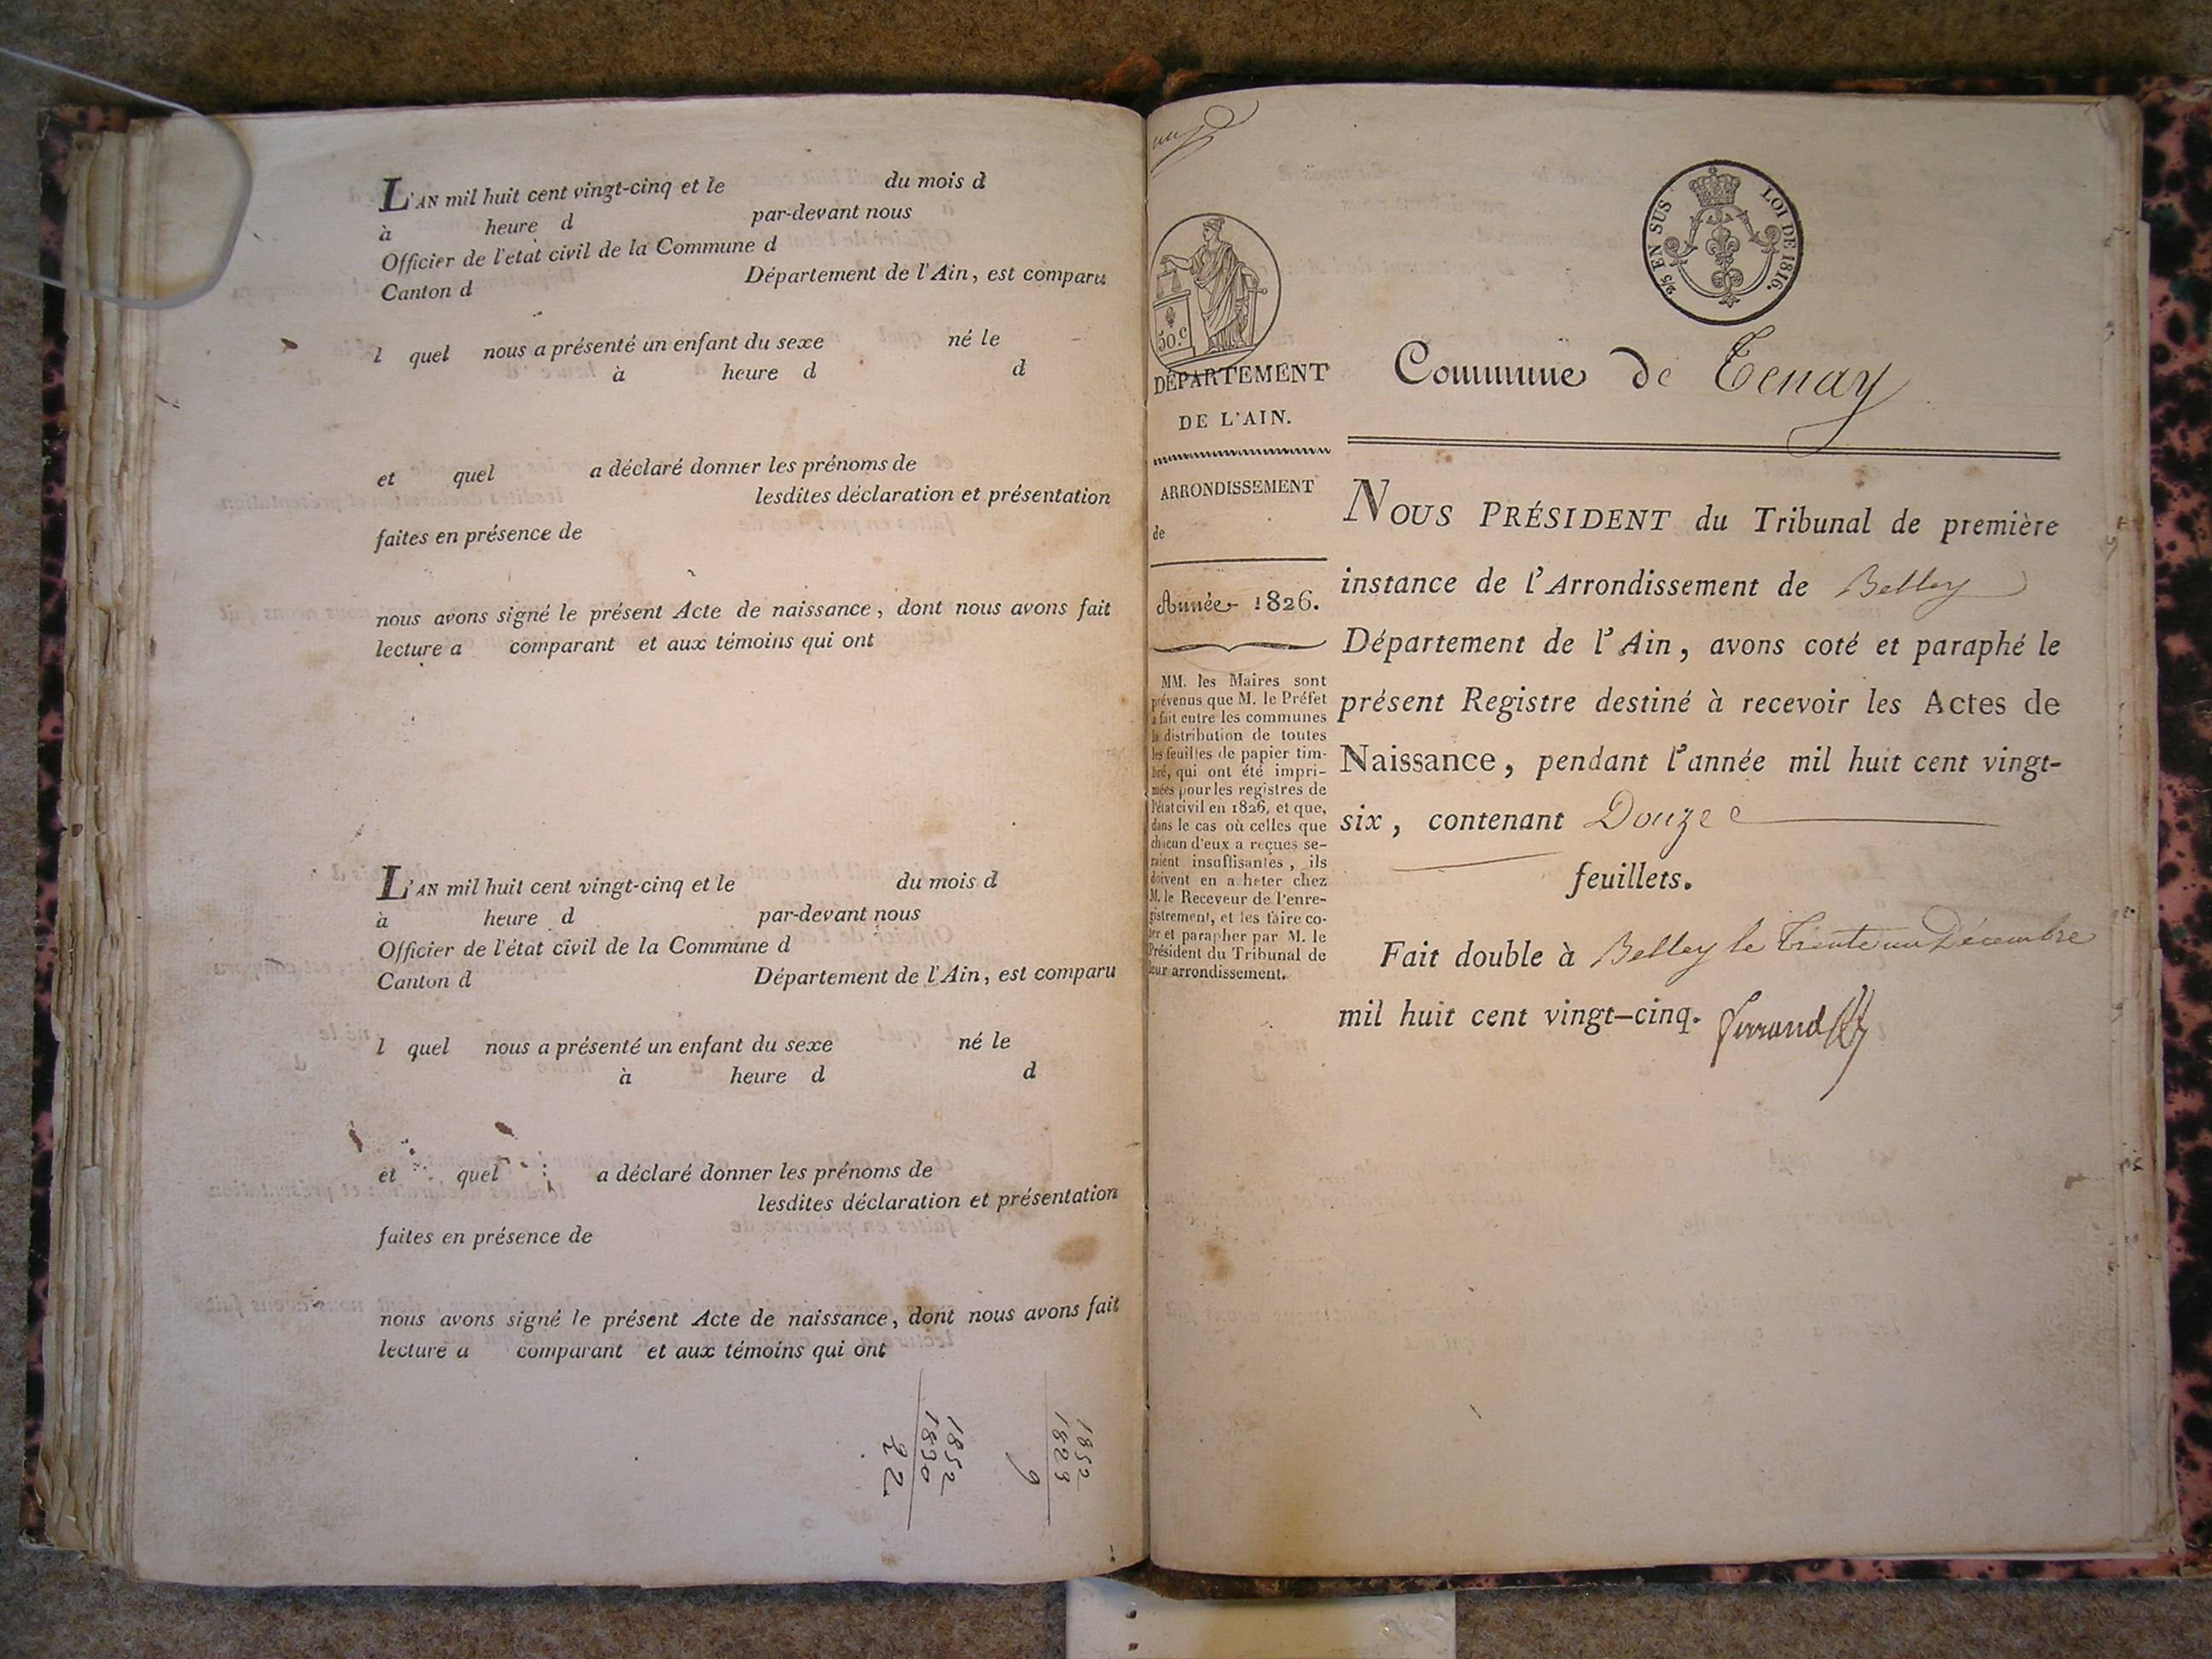 L'AN mil huit cent vingt-cinq et le du mois d
à heure d par-devant nous
Officier de l'état civil de la Commune d
Canton d Département de l'Ain, est comparu
l quel nous a présenté un enfant du sexe né le
à heure d d
et quel a déclaré donner les prénoms de
lesdites déclaration et présentation
faites en présence de
nous avons signé le présent Acte de naissance, dont nous avons fait
lecture a comparant et aux témoins qui ont
L'AN mil huit cent vingt-cinq et le du mois d
à heure d par-devant nous
Officier de l'état civil de la Commune d
Canton d Département de l'Ain, est comparu
l quel nous a présenté un enfant du sexe né le
à heure d d
et quel a déclaré donner les prénoms de
lesdites déclaration et présentation
faites en présence de
nous avons signé le présent Acte de naissance, dont nous avons fait
lecture a comparant et aux témoins qui ont
1852
1830
22
1852
1823
9
50.c
DÉPARTEMENT
DE L'AIN.
ARRONDISSEMENT
de
Année 1826.
MM. les Maires sont
prévenus que M. le Préfet
a fait entre les communes
la distribution de toutes
les feuilles de papier tim-
bré, qui ont été impri-
mées pour les registres de
l'état civil en 1826, et que,
dans le cas où celles que
chacun d'eux a reçues se-
raient insuffisantes, ils
doivent en acheter chez
M. le Receveur de l'enre-
gistrement, et les faire co-
ter et parapher par M. le
Président du Tribunal de
leur arrondissement.
2/5 EN SUS LOI DE 1816.
Commune de Tenay
NOUS PRÉSIDENT du Tribunal de première
instance de l'Arrondissement de Belley
Département de l'Ain, avons coté et paraphé le
présent Registre destiné à recevoir les Actes de
Naissance, pendant l'année mil huit cent vingt-
six, contenant Douze
feuillets.
Fait double à Belley le trente un Décembre
mil huit cent vingt-cinq.